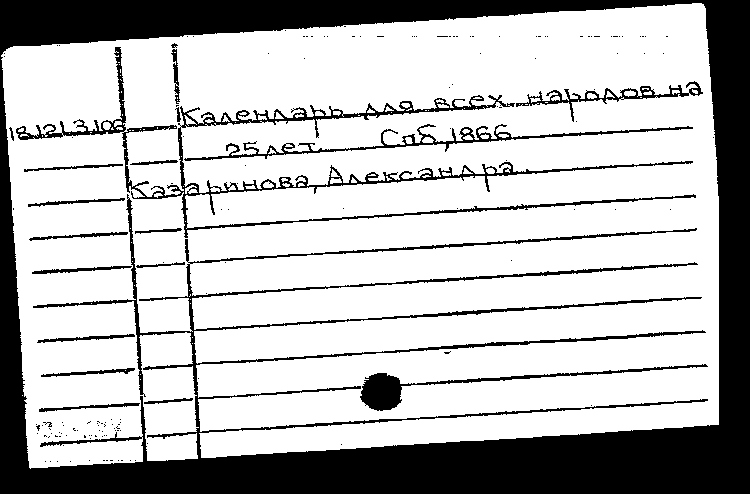 18.121.3.106 Календарь для всех народов на
25 лет. Спб, 1866
Казаринова, Александра.